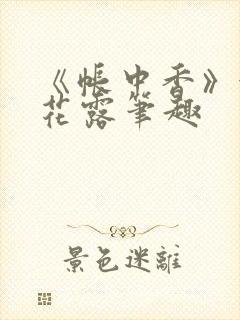 《帳中香》
花露筆趣
景色迷離